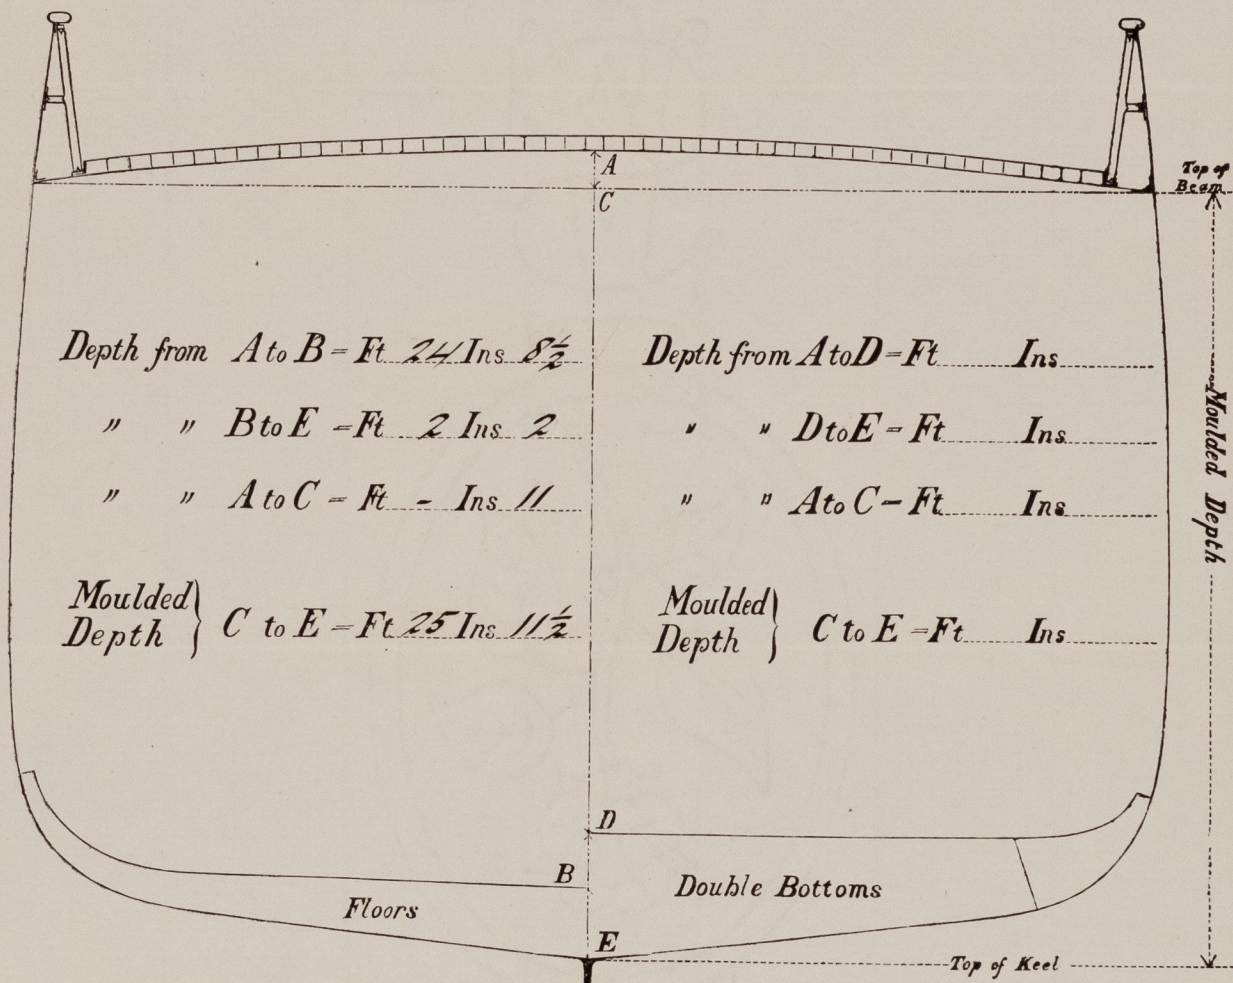 A
Top of
Beam
C
Depth from A to B = Ft 24 Ins 8½
" " B to E = Ft 2 Ins 2
" " A to C = Ft - Ins 11
Moulded
Depth } C to E = Ft 25 Ins 11½
Depth from A to D = Ft Ins
" " D to E = Ft Ins
" " A to C = Ft Ins
Moulded
Depth } C to E = Ft Ins
Moulded Depth
D
B
Double Bottoms
Floors
E
Top of Keel